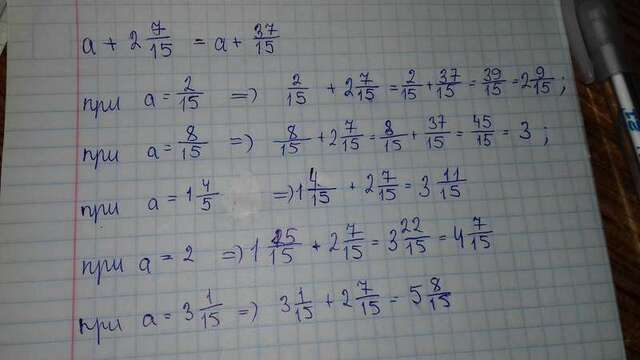 a + 2 7/15 = a + 37/15
при a = 2/15 => 2/15 + 2 7/15 = 2/15 + 37/15 = 39/15 = 2 9/15 ;
при a = 8/15 => 8/15 + 2 7/15 = 8/15 + 37/15 = 45/15 = 3 ;
при a = 1 4/5 => 1 4/15 + 2 7/15 = 3 11/15
при a = 2 => 1 15/15 + 2 7/15 = 3 22/15 = 4 7/15
при a = 3 1/15 => 3 1/15 + 2 7/15 = 5 8/15